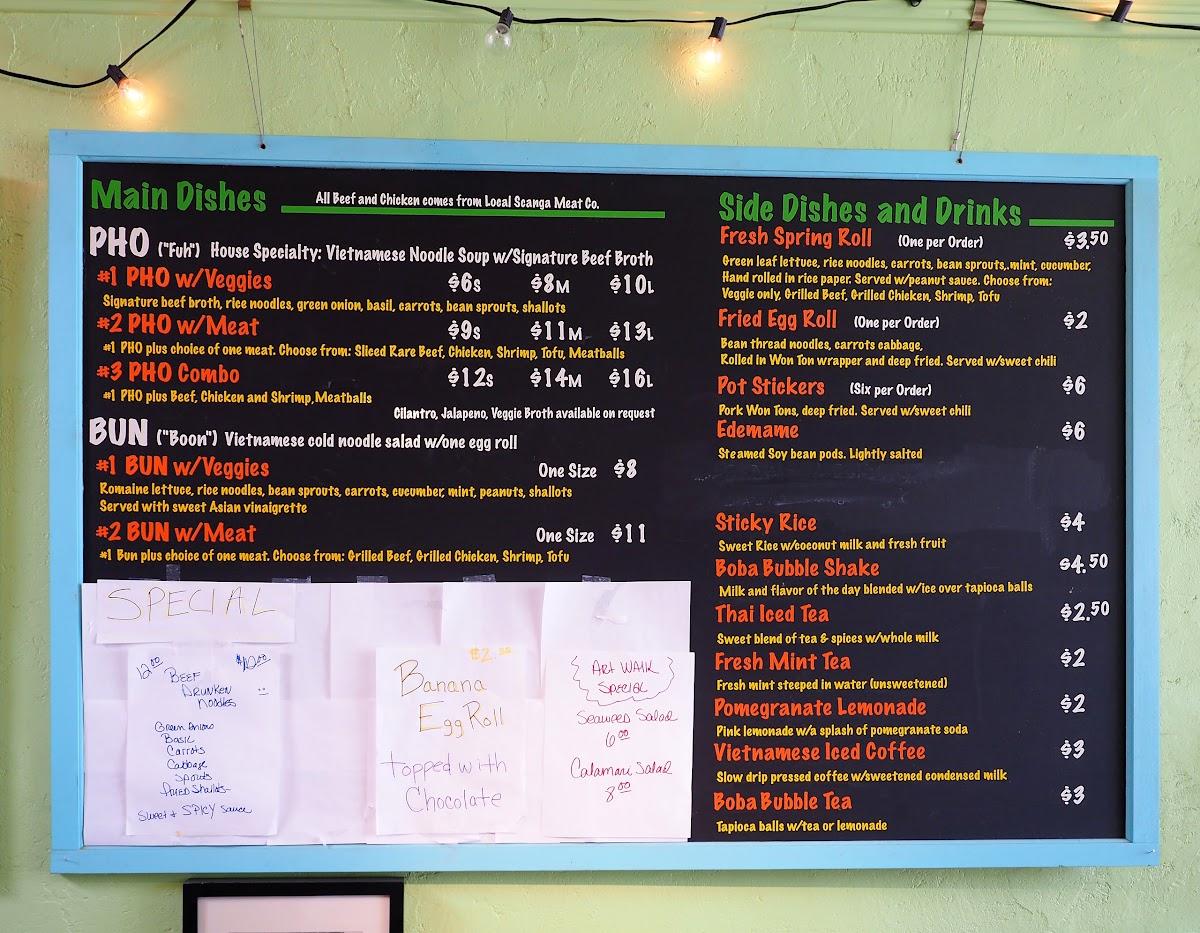 Main Dishes
All Beef and Chicken comes from Local Scanga Meat Co.
PHO ("Fuh") House Specialty: Vietnamese Noodle Soup w/Signature Beef Broth
#1 PHO w/Veggies $6S $8M $10L
Signature beef broth, rice noodles, green onion, basil, carrots, bean sprouts, shallots
#2 PHO w/Meat $9S $11M $13L
#1 PHO plus choice of one meat. Choose from: Sliced Rare Beef, Chicken, Shrimp, Tofu, Meatballs
#3 PHO Combo $12S $14M $16L
#1 PHO plus Beef, Chicken and Shrimp,Meatballs
Cilantro, Jalapeno, Veggie Broth available on request
BUN ("Boon") Vietnamese cold noodle salad w/one egg roll
#1 BUN w/Veggies One Size $8
Romaine lettuce, rice noodles, bean sprouts, carrots, cucumber, mint, peanuts, shallots
Served with sweet Asian vinaigrette
#2 BUN w/Meat One Size $11
#1 Bun plus choice of one meat. Choose from: Grilled Beef, Grilled Chicken, Shrimp, Tofu
SPECIAL
12.00
BEEF
DRUNKEN
Noodles
Green Onions
Basil
Carrots
Cabbage
Sprouts
Fried Shallots
Sweet + SPICY Sauce
Banana
Egg Roll
topped with
Chocolate
ART WALK
SPECIAL
Seaweed Salad
6.00
Calamari Salad
8.00
Side Dishes and Drinks
Fresh Spring Roll (One per Order) $3.50
Green leaf lettuce, rice noodles, carrots, bean sprouts,.mint, cucumber,
Hand rolled in rice paper. Served w/peanut sauce. Choose from:
Veggie only, Grilled Beef, Grilled Chicken, Shrimp, Tofu
Fried Egg Roll (One per Order) $2
Bean thread noodles, carrots cabbage,
Rolled in Won Ton wrapper and deep fried. Served w/sweet chili
Pot Stickers (Six per Order) $6
Pork Won Tons, deep fried. Served w/sweet chili
Edemame $6
Steamed Soy bean pods. Lightly salted
Sticky Rice $4
Sweet Rice w/coconut milk and fresh fruit
Boba Bubble Shake $4.50
Milk and flavor of the day blended w/ice over tapioca balls
Thai Iced Tea $2.50
Sweet blend of tea & spices w/whole milk
Fresh Mint Tea $2
Fresh mint steeped in water (unsweetened)
Pomegranate Lemonade $2
Pink lemonade w/a splash of pomegranate soda
Vietnamese Iced Coffee $3
Slow drip pressed coffee w/sweetened condensed milk
Boba Bubble Tea $3
Tapioca balls w/tea or lemonade